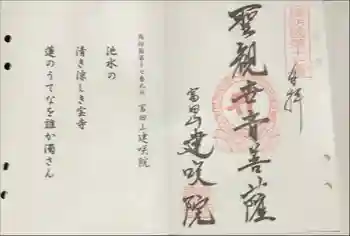 奉拝
聖観世音菩薩
富田山建咲院
富田山建咲院
池水の
清き涼しき宝寺
蓮のうてなを誰か濁さん